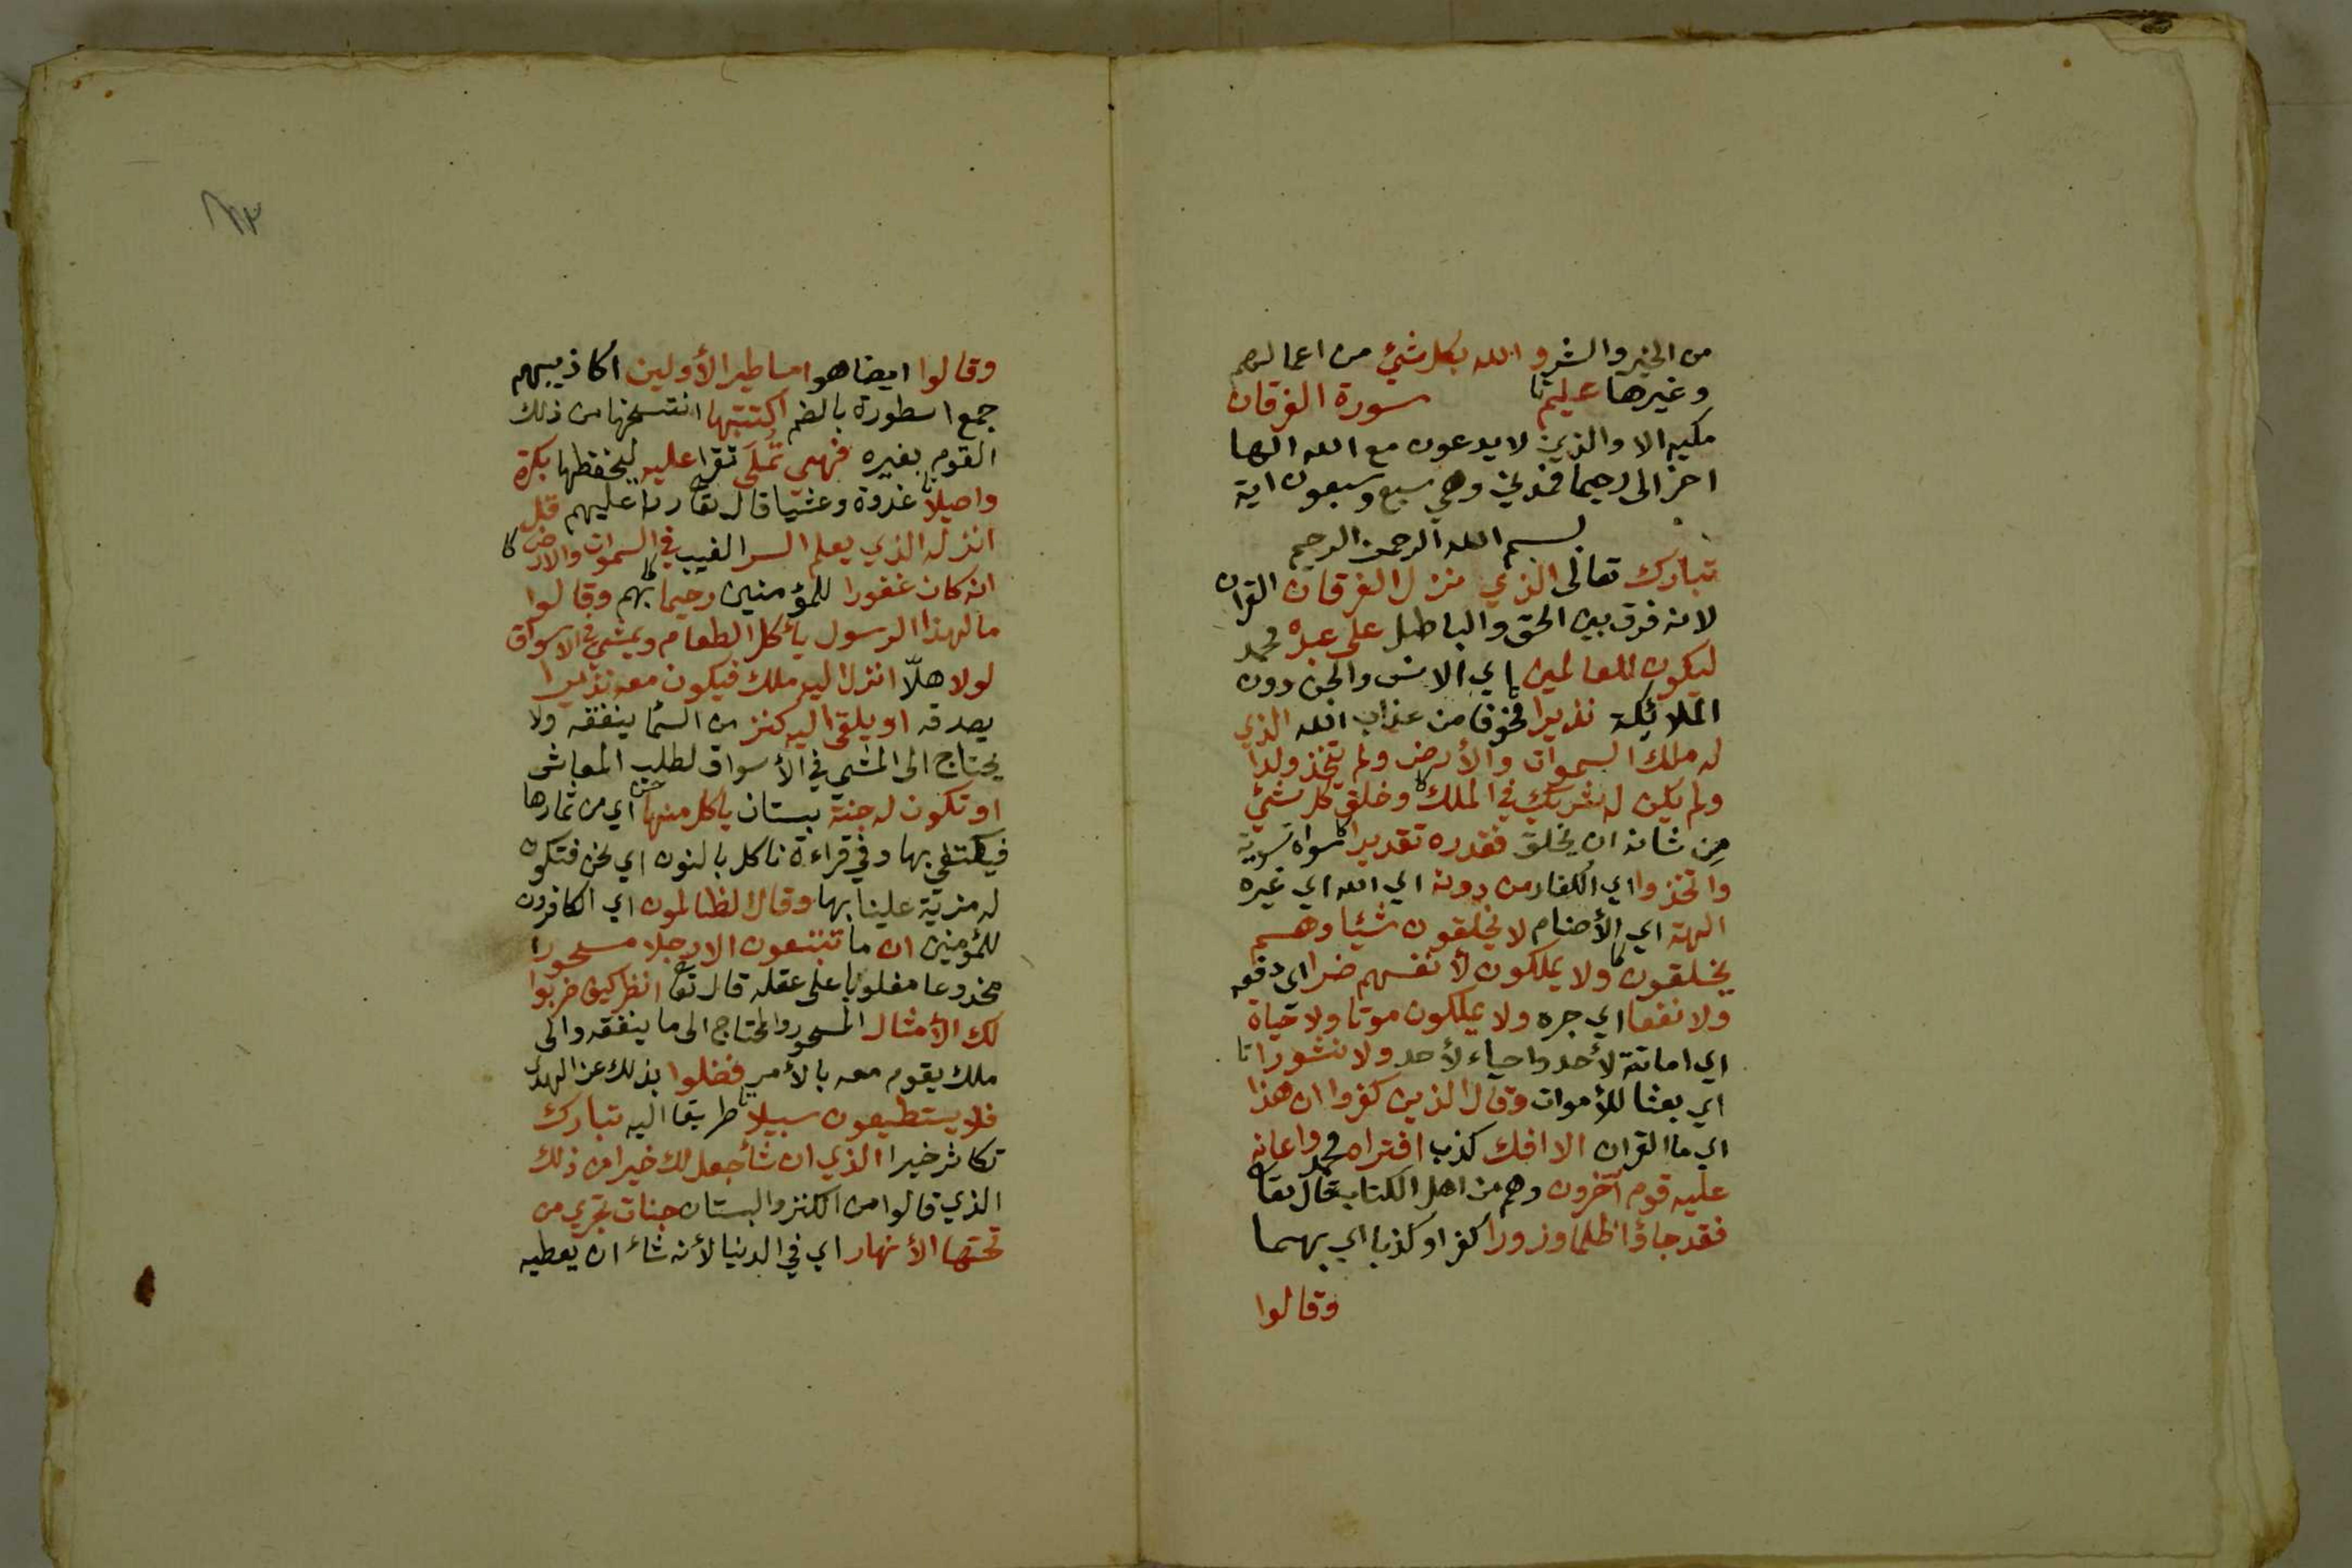 من الخير والشر والله بكل شيئ من اعمالهم
وغيرها عليم سورة الفرقان
مكيه الا والذين لا يدعون مع الله الها
اخر الى رحيما فمدني وهي سبع وسبعون اية
بسم الله الرحمن الرحيم
تبارك تعالى الذي نزل الفرقان القران
لانه فرق بين الحق والباطل على عبده محمد
ليكون للعالمين اي الانس والجن دون
الملائكة نذيرا مخوفا من عذاب الله الذي
له ملك السموات والأرض ولم يتخذ ولدا
ولم يكن له شريك في الملك وخلق كل شيئ
من شانه ان يخلق فقدره تقديرا سواه تسوية
واتخذوا اي الكفار من دونه اي الله اي غيره
الهة اي الأصنام لا يخلقون شيئا وهم
يخلقون ولا يملكون لأنفسهم ضرا اي دفعه
ولا نفعا اي جره ولا يملكون موتا ولا حياة
اي اماتة لأحد واحياء لأحد ولا نشورا
اي بعثا للأموات وقال الذين كفروا ان هذا
اي ما القران الا افك كذب افتراه محمد واعانه
عليه قوم آخرون وهم من اهل الكتاب قال تعا
فقد جاؤا ظلما وزورا كفرا وكذبا اي بهما
وقالوا
٨٣
وقالوا ايضا هو اساطير الأولين اكاذيبهم
جمع اسطورة بالضم اكتتبها انتسخها من ذلك
القوم بغيره فهي تملى تقرا عليه ليحفظها بكرة
واصيلا غدوة وعشيا قال تعا ردا عليهم قل
انزله الذي يعلم السر الغيب في السموات والارض
انه كان غفورا للمؤمنين رحيما بهم وقالوا
ما لهذا الرسول يأكل الطعام ويمشي في الاسواق
لولا هلّا انزل اليه ملك فيكون معه نذيرا
يصدقه او يلقى اليه كنز من السما ينفقه ولا
يحتاج الى المشي في الأسواق لطلب المعاش
او تكون له جنة بستان يأكل منها اي من ثمارها
فيكتفي بها وفي قراءة نأكل بالنون اي نحن فتكون
له مزيّة علينا بها وقال الظالمون اي الكافرون
للمؤمنين ان ما تتبعون الا رجلا مسحورا
مخدوعا مغلوبا على عقله قال تعا انظر كيف ضربوا
لك الأمثال المسحور والمحتاج الى ما ينفقه والى
ملك يقوم معه بالأمر فضلوا بذلك عن الهدى
فلا يستطيعون سبيلا طريقا اليه تبارك
تكاثر خيرا الذي ان شأ جعل لك خيرا من ذلك
الذي قالوا من الكنز والبستان جنات تجري من
تحتها الأنهار اي في الدنيا لأنه شاء ان يعطيه